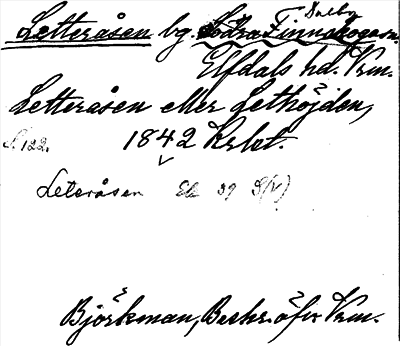 Dalby
Letteråsen bg. Södra Finnskogarn.
Elfdals hd. Vrm.
Letteråsen eller Lethöjden,
S. 122. 1842 Krbet.
Leteråsen Ek 39 S(V)
Björkman, Beskr. öfv. Vrm.